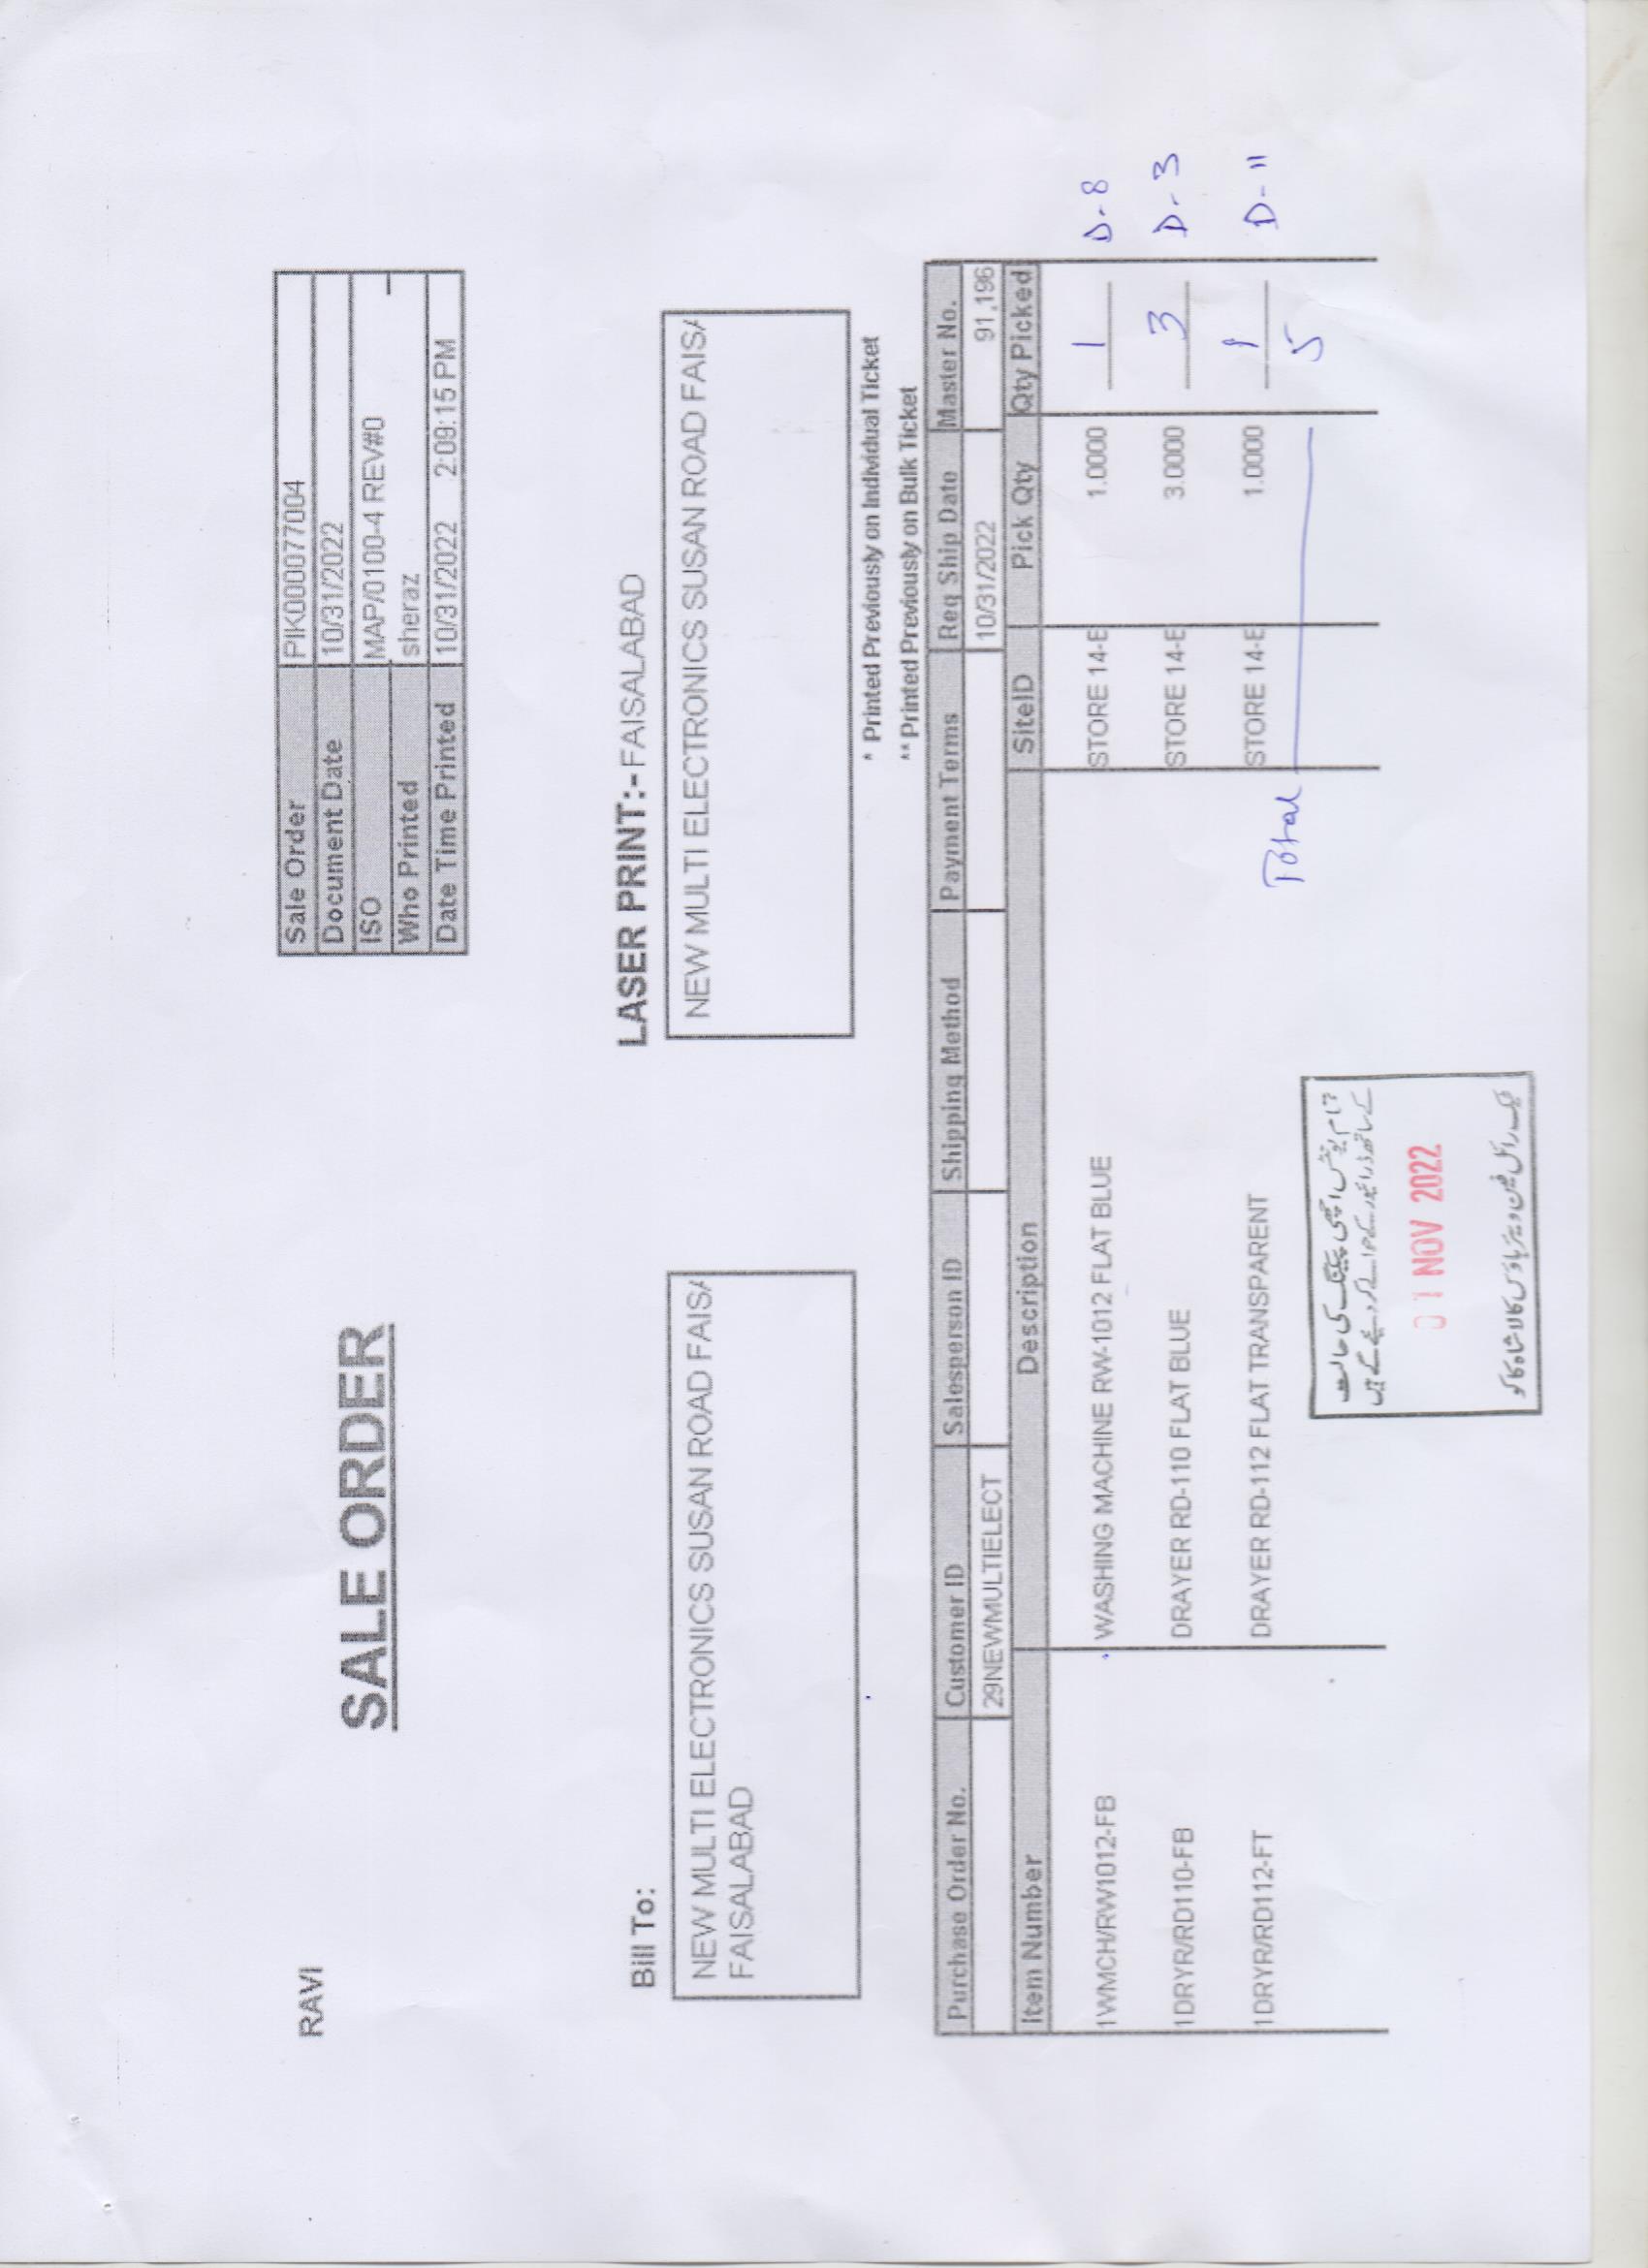 RAVI
SALE ORDER
Sale Order PIK000077004
Document Date 10/31/2022
ISO MAP/0100-4 REV#0
Who Printed sheraz
Date Time Printed 10/31/2022 2:09:15 PM
Bill To:
NEW MULTI ELECTRONICS SUSAN ROAD FAISA
FAISALABAD
LASER PRINT:- FAISALABAD
NEW MULTI ELECTRONICS SUSAN ROAD FAISA
* Printed Previously on Individual Ticket
** Printed Previously on Bulk Ticket
Purchase Order No. Customer ID Salesperson ID Shipping Method Payment Terms Req Ship Date Master No.
29NEWMULTIELECT 10/31/2022 91,196
Item Number Description SiteID Pick Qty Qty Picked
1WMCH/RW1012-FB WASHING MACHINE RW-1012 FLAT BLUE STORE 14-E 1.0000 1 D-8
1DRYR/RD110-FB DRAYER RD-110 FLAT BLUE STORE 14-E 3.0000 3 D-3
1DRYR/RD112-FT DRAYER RD-112 FLAT TRANSPARENT STORE 14-E 1.0000 1 D-11
Total 5
تمام یونٹس اچھی پیکنگ کی حالت
کے ساتھ ڈرائیور کے حوالے کر دیئے گے ہیں
01 NOV 2022
ٹیک رائل فین ویئر ہاؤس کالا شاہ کاکو